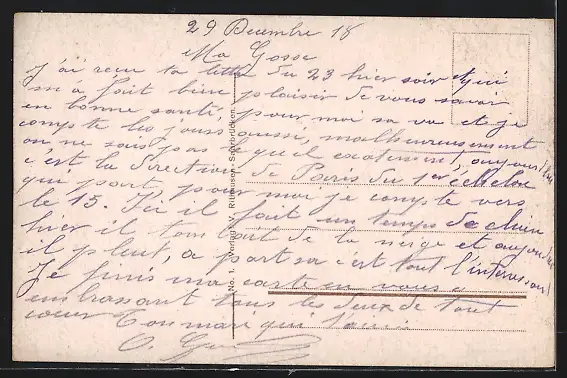 29 Decembre 18
Ma Gosse
J'ai reçu ta lettre du 23 hier soir et qui
m'a fait bien plaisir de vous savoir
en bonne santé, pour moi sa va et je
compte les jours aussi, malheureusement
on ne sais pas lequel exatement, aujourd'hui
c'est la directive de Paris du 1er échelon
qui part, pour moi je compte vers
le 15. Ici il fait un temps de chien
hier il tombait de la neige et aujourd'hui
il pleut, a part sa c'est tout l'interessant
Je finis ma carte en vous
embrassant tous les deux de tout
coeur Ton mari qui t'aime
No. 1. Verlag V. Rithausen, Saarbrücken